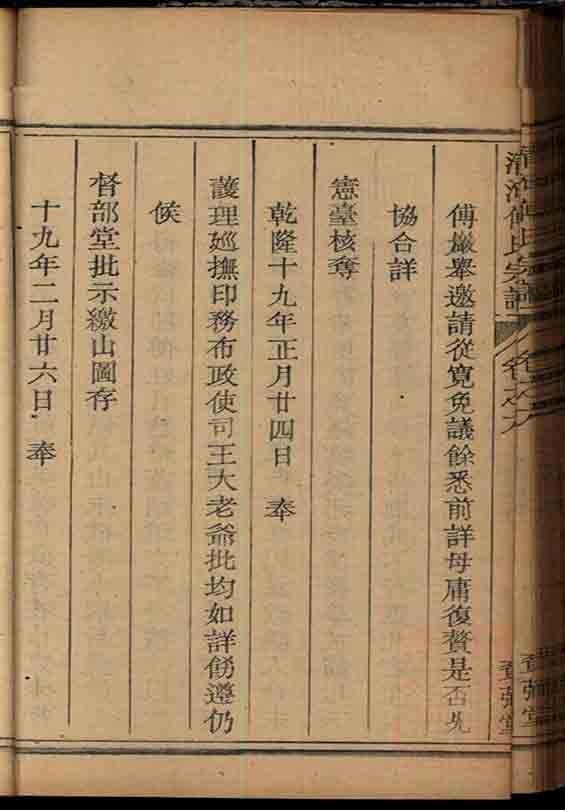 清河傅氏宗譜
卷之六
登瀛堂
傅巖舉邀請從寬免議餘悉前詳毋庸復贅是否允
協合詳
憲臺核奪
乾隆十九年正月廿四日 奉
護理廵撫印務布政使司王大老爺批均如詳飭遵仍
候
督部堂批示繳山圖存
十九年二月廿六日 奉